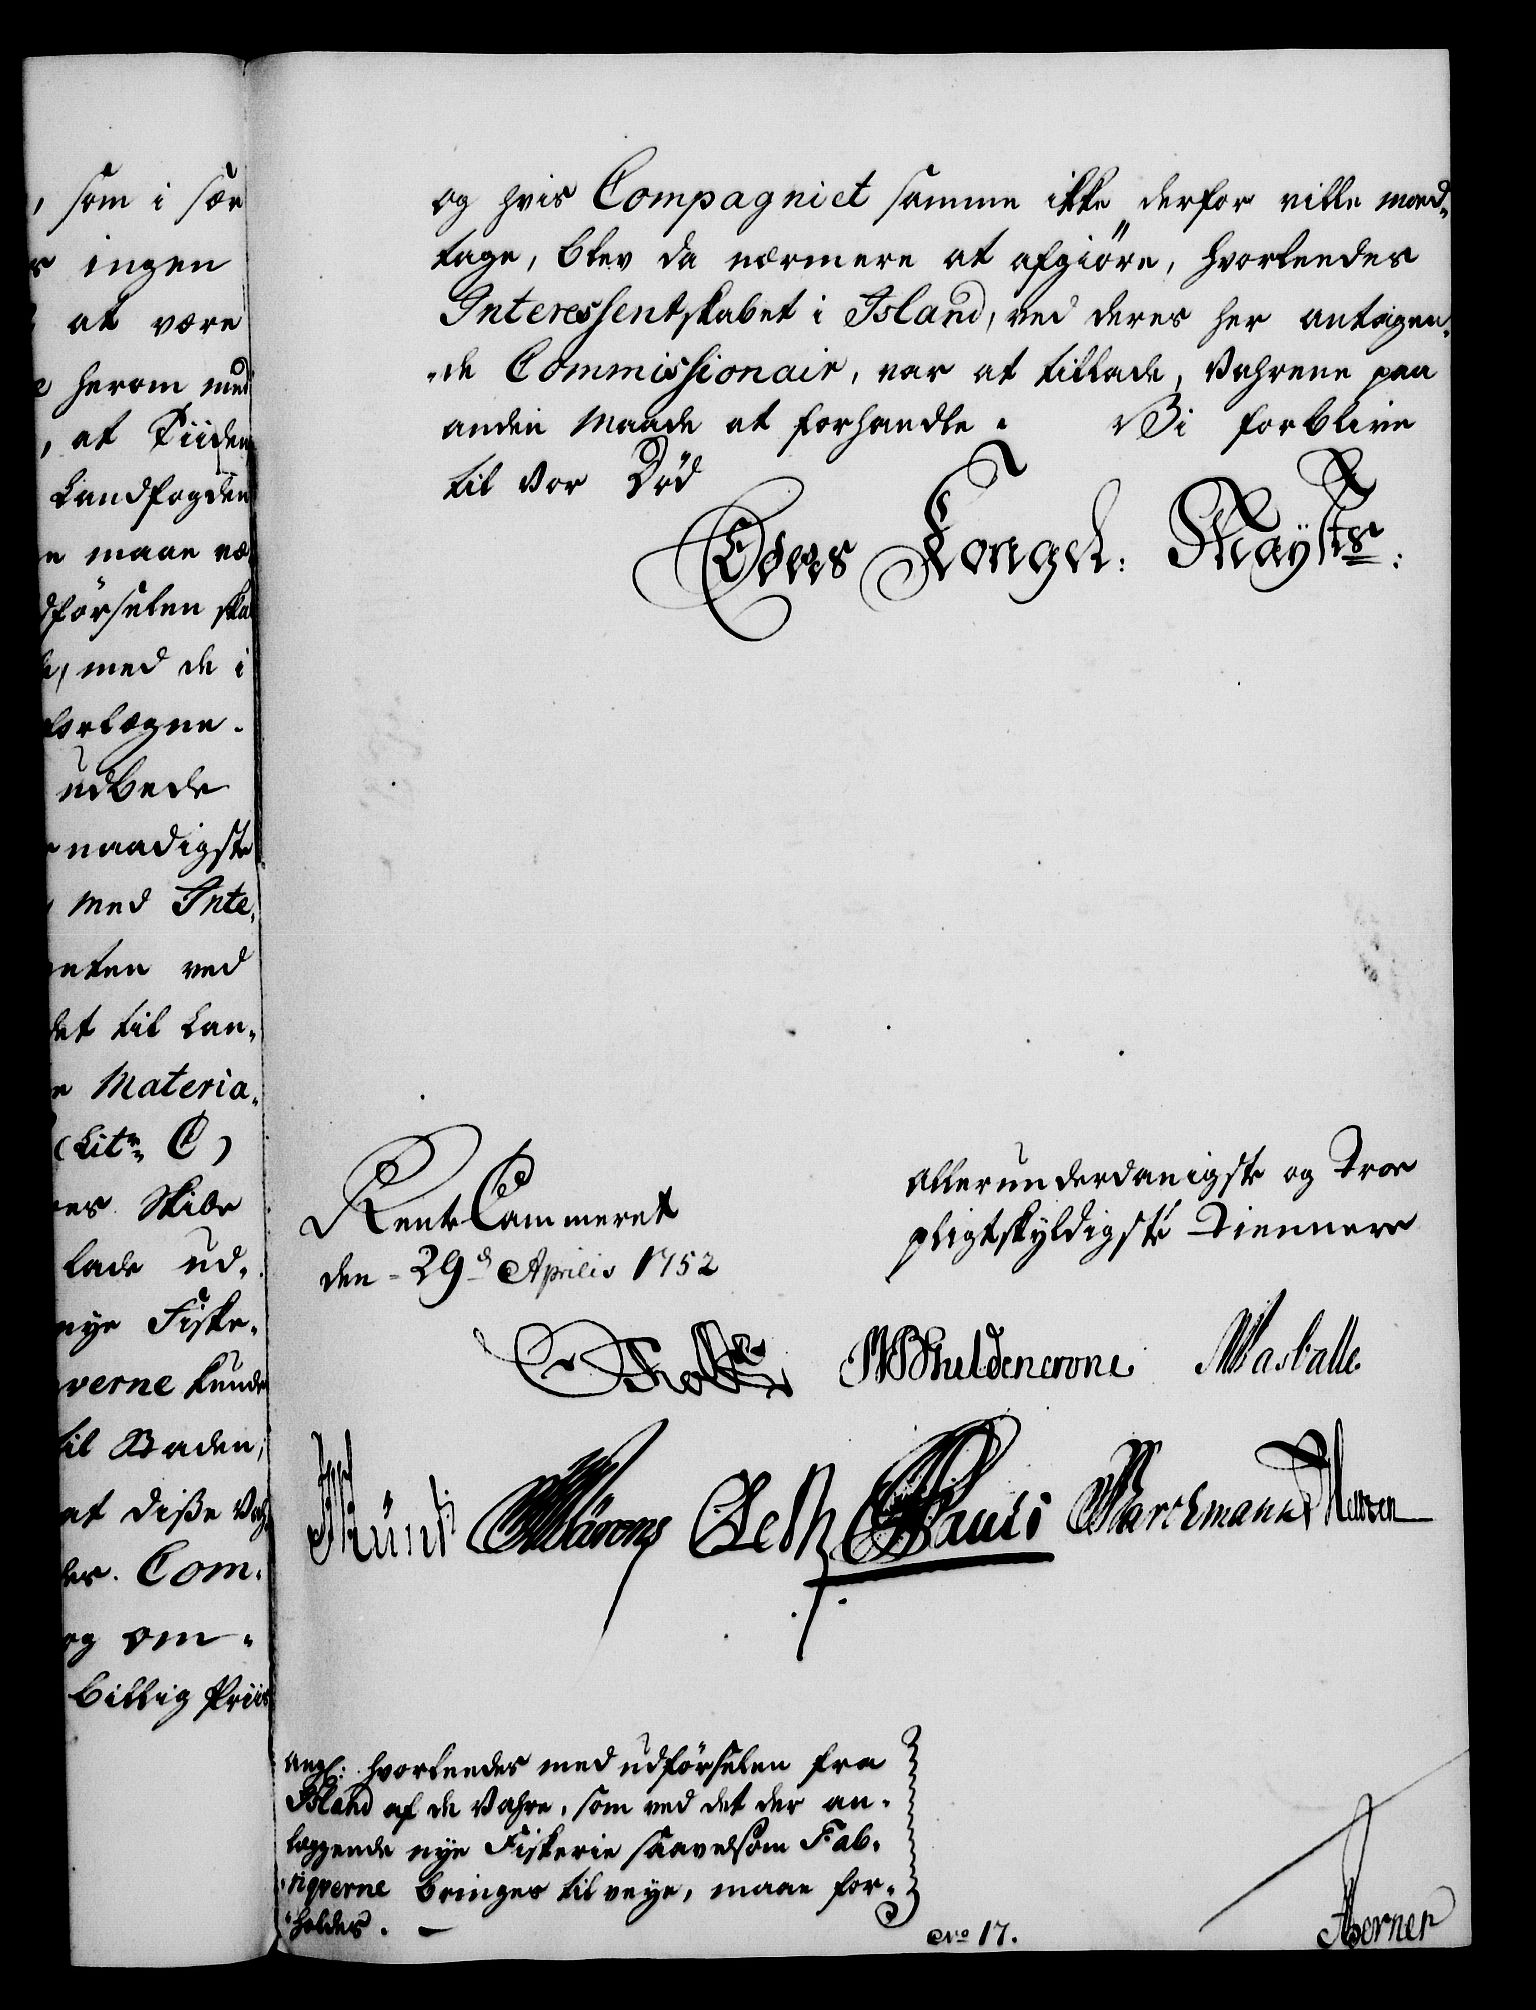 , som i sær
ingen
at være
herom med
, at Tiiden
Landfogden
maae væ
dførselen ska
med de i
forlægne.
udbede
naadigste
med Inte-
ved
det til Lan-
Materia-
(Litr. C)
Skibe
lade ud-
nye Fiske-
verne kunde
til Baden,
at diße Vah
Com-
og om-
billig Priis
og hvis Compagniet samme ikke derfor ville mod-
tage, blev da nærmere at afgiöre, hvorleedes
Interessentskabet i Island, ved deres her antagen-
-de Commissionair, var at tillade, Vahrene paa
anden Maade at forhandle. Vi forblive
til vor Död
Eders Kongel: Mayts:
RenteCammeret
den 29d Aprilis 1752
allerunderdanigste og Troe
pligtskyldigste Tiennere
Holst Ghuldencrone Wasballe
Leth Pauli Barchmann
ang: hvorleedes med udförselen fra
Island af de Vahre, som ved det der an-
læggende nye Fiskerie saavelsom Fab-
riqverne bringes til veye, maae for-
holdes. —
No 17.
Berner